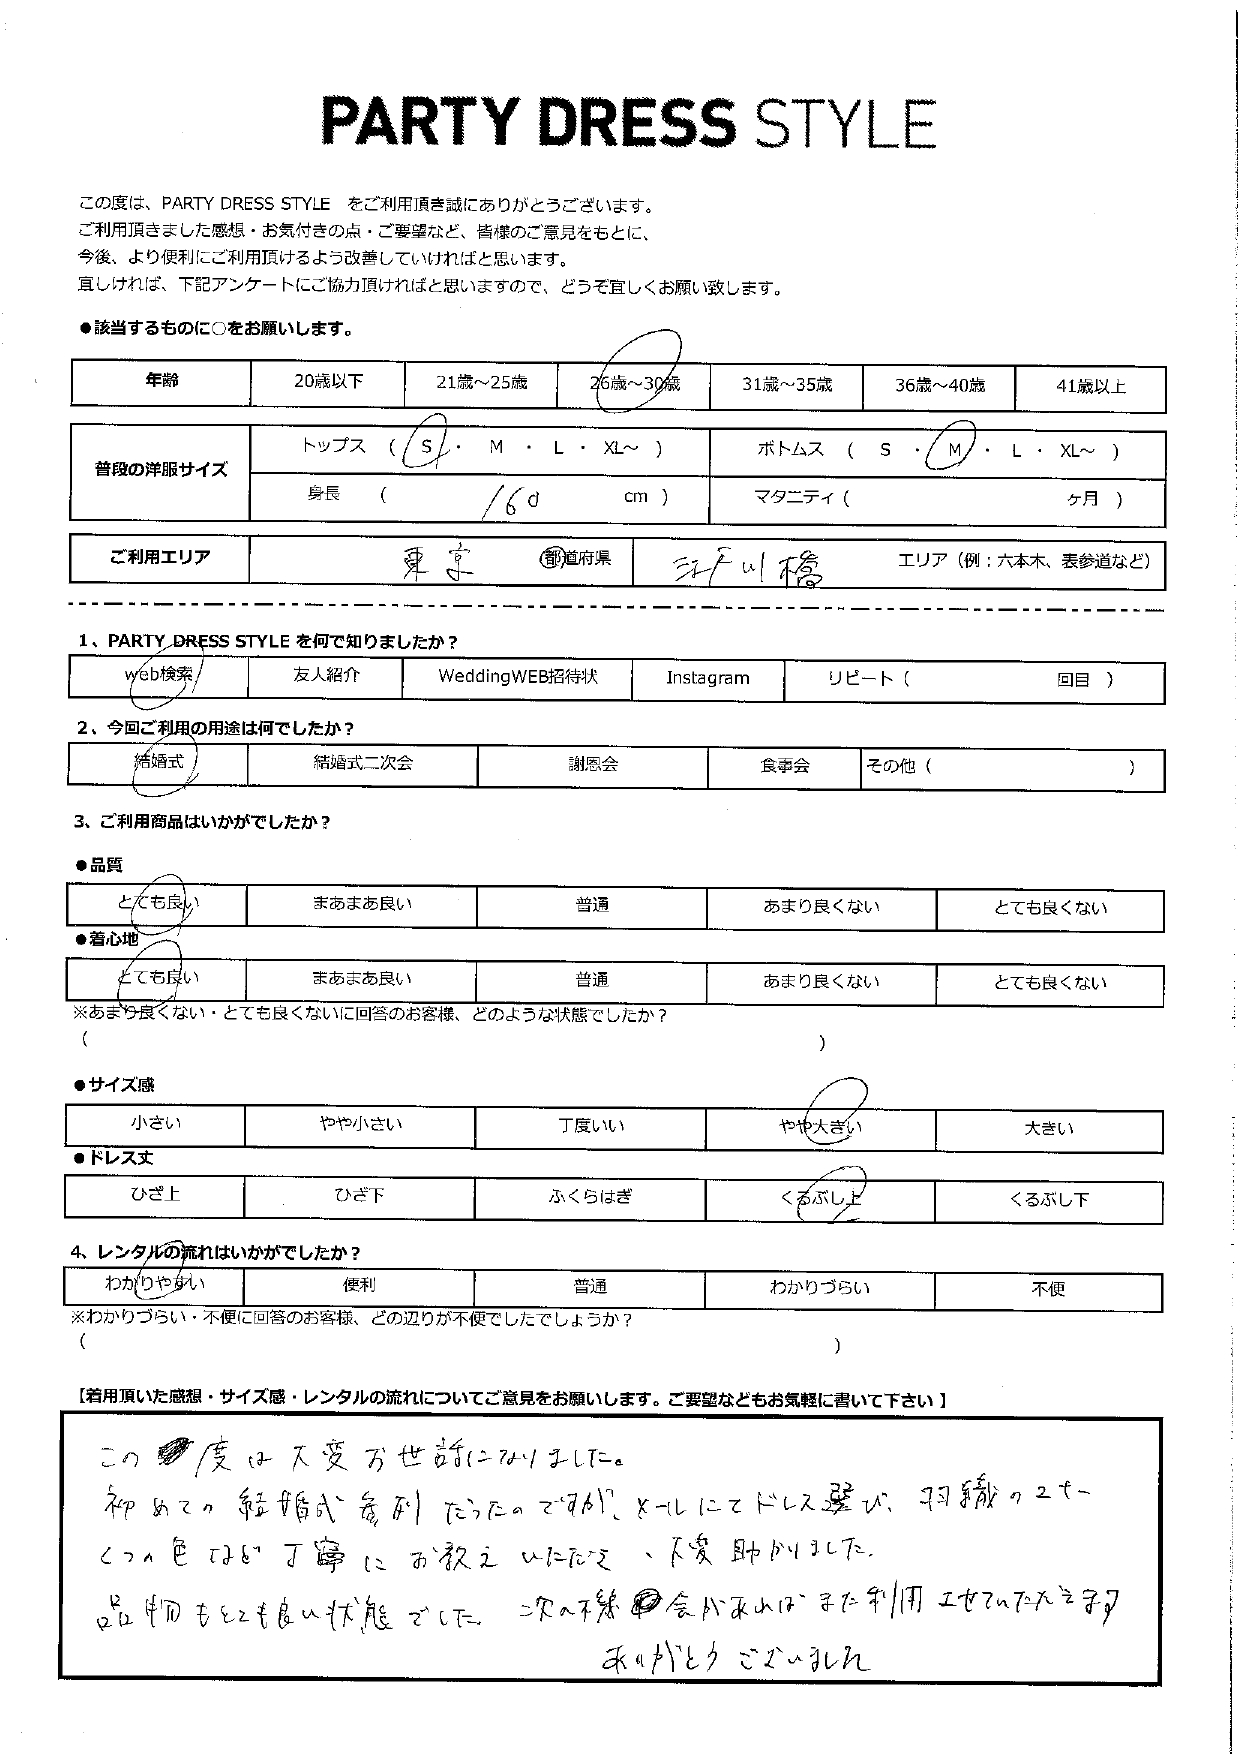 PARTY DRESS STYLE
この度は、PARTY DRESS STYLE をご利用頂き誠にありがとうございます。
ご利用頂きました感想・お気付きの点・ご要望など、皆様のご意見をもとに、
今後、より便利にご利用頂けるよう改善していければと思います。
宜しければ、下記アンケートにご協力頂ければと思いますので、どうぞ宜しくお願い致します。
●該当するものに○をお願いします。
年齢 20歳以下 21歳～25歳 26歳～30歳 31歳～35歳 36歳～40歳 41歳以上
普段の洋服サイズ
トップス ( S ・ M ・ L ・ XL～ ) ボトムス ( S ・ M ・ L ・ XL～ )
身長 ( 160 cm ) マタニティ ( ヶ月 )
ご利用エリア 東京 都道府県 江戸川橋 エリア（例：六本木、表参道など）
1、PARTY DRESS STYLE を何で知りましたか？
web検索 友人紹介 WeddingWEB招待状 Instagram リピート ( 回目 )
2、今回ご利用の用途は何でしたか？
結婚式 結婚式二次会 謝恩会 食事会 その他 ( )
3、ご利用商品はいかがでしたか？
●品質
とても良い まあまあ良い 普通 あまり良くない とても良くない
●着心地
とても良い まあまあ良い 普通 あまり良くない とても良くない
※あまり良くない・とても良くないに回答のお客様、どのような状態でしたか？
( )
●サイズ感
小さい やや小さい 丁度いい やや大きい 大きい
●ドレス丈
ひざ上 ひざ下 ふくらはぎ くるぶし上 くるぶし下
4、レンタルの流れはいかがでしたか？
わかりやすい 便利 普通 わかりづらい 不便
※わかりづらい・不便に回答のお客様、どの辺りが不便でしたでしょうか？
( )
【着用頂いた感想・サイズ感・レンタルの流れについてご意見をお願いします。ご要望などもお気軽に書いて下さい】
この度は大変お世話になりました。
初めての結婚式参列だったのですが、メールにてドレス選び、羽織のコサー
の色など丁寧にお教えいただき、大変助かりました。
品物もとても良い状態でした。次の機会があればまた利用させていただきます
ありがとうございました